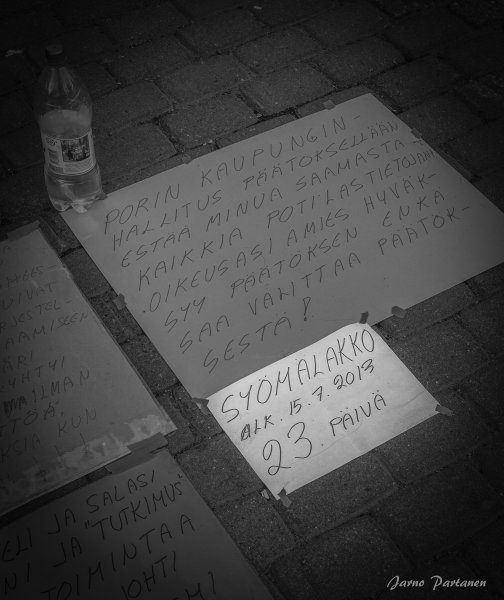 PORIN KAUPUNGIN-
HALLITUS PÄÄTÖKSELLÄÄN
ESTÄÄ MINUA SAAMASTA
KAIKKIA POTILASTIETOJANI
.OIKEUSASIAMIES HYVÄK-
SYY PÄÄTÖKSEN ENKÄ
SAA VALITTAA PÄÄTÖK-
SESTÄ!
SYÖMÄLAKKO
ALK. 15.7.2013
23. PÄIVÄ
UIVAT
JESTEL-
AAMISEEN
ÄRI
LYHTYI
MAILMAN
TTÖÄ.
KSIA KUN
ELI JA SALASI
NI JA "TUTKIMUS"
TOIMINTAA
JOHTI
Jarno Partanen